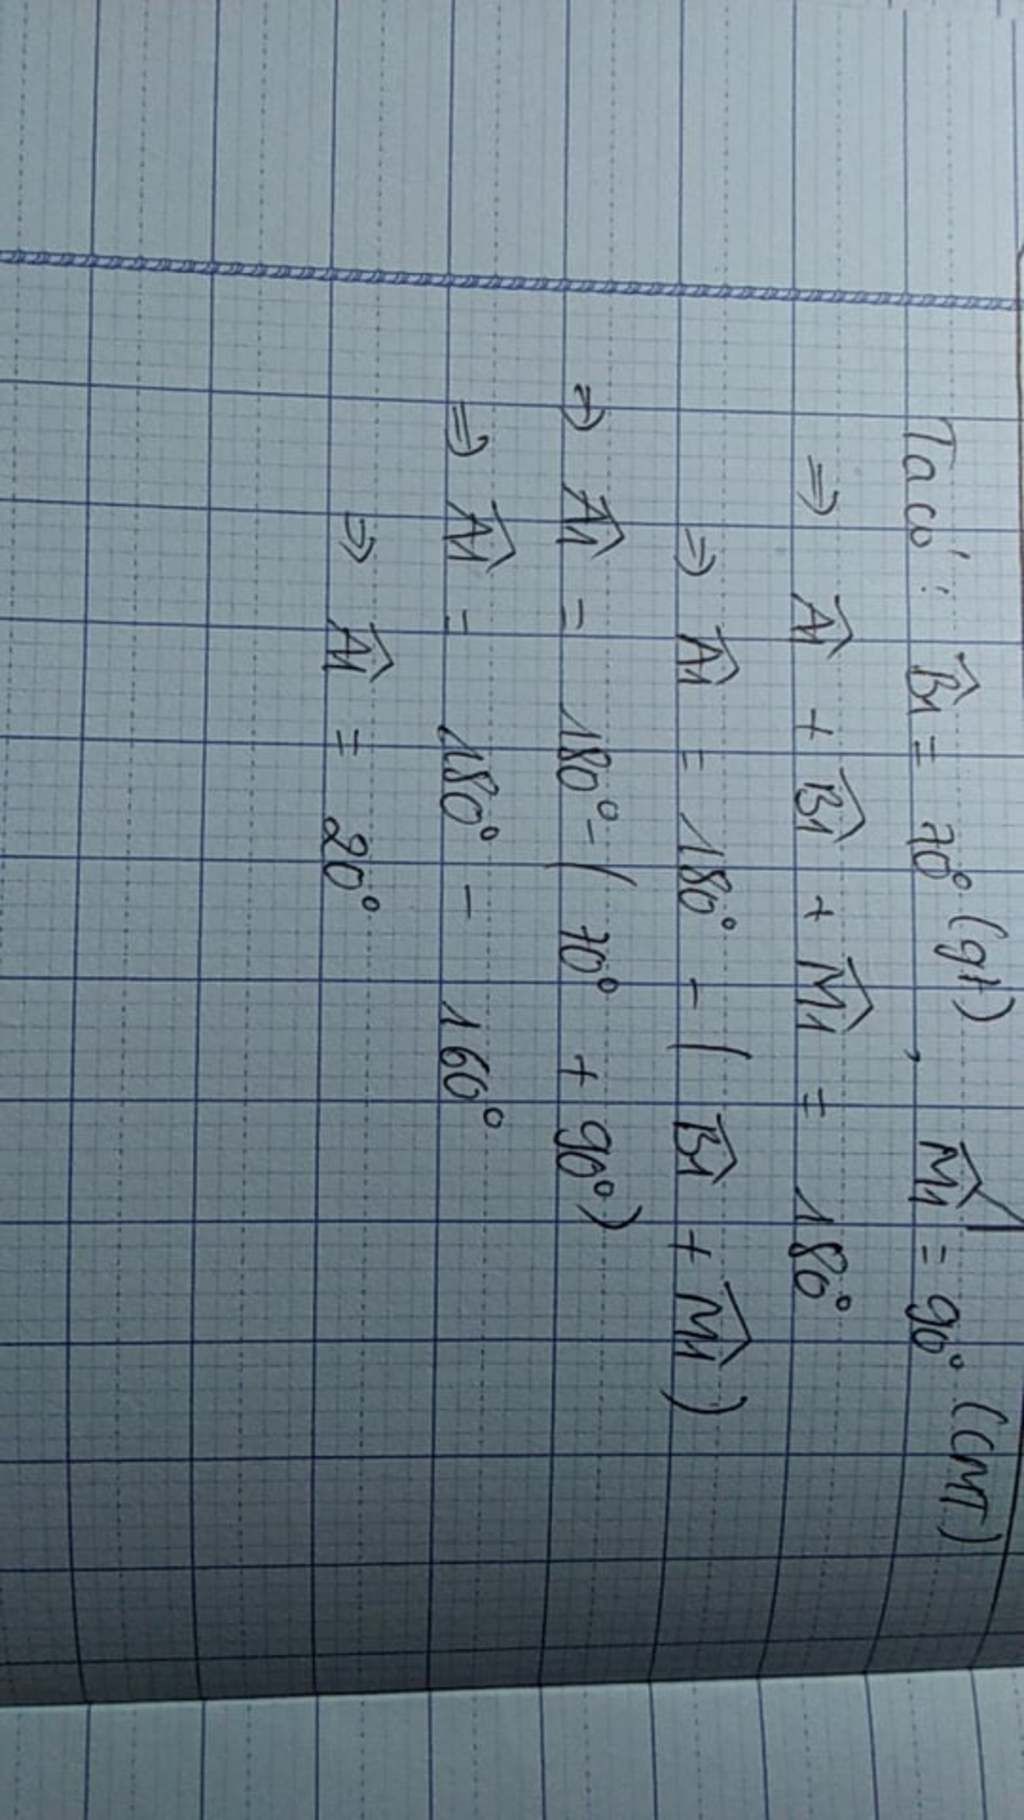 Ta có: B̂1 = 70° (gt), M̂1 = 90° (CMT)
⇒ Â1 + B̂1 + M̂1 = 180°
⇒ Â1 = 180° - (B̂1 + M̂1)
⇒ Â1 = 180° - (70° + 90°)
⇒ Â1 = 180° - 160°
⇒ Â1 = 20°